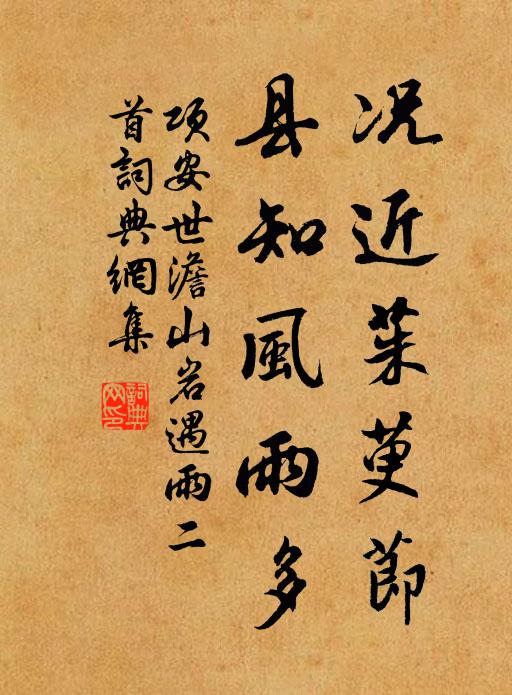 况近茱萸節
县知風雨多
项安世澹山岩遇雨二
首詞典網集
詞典
网印